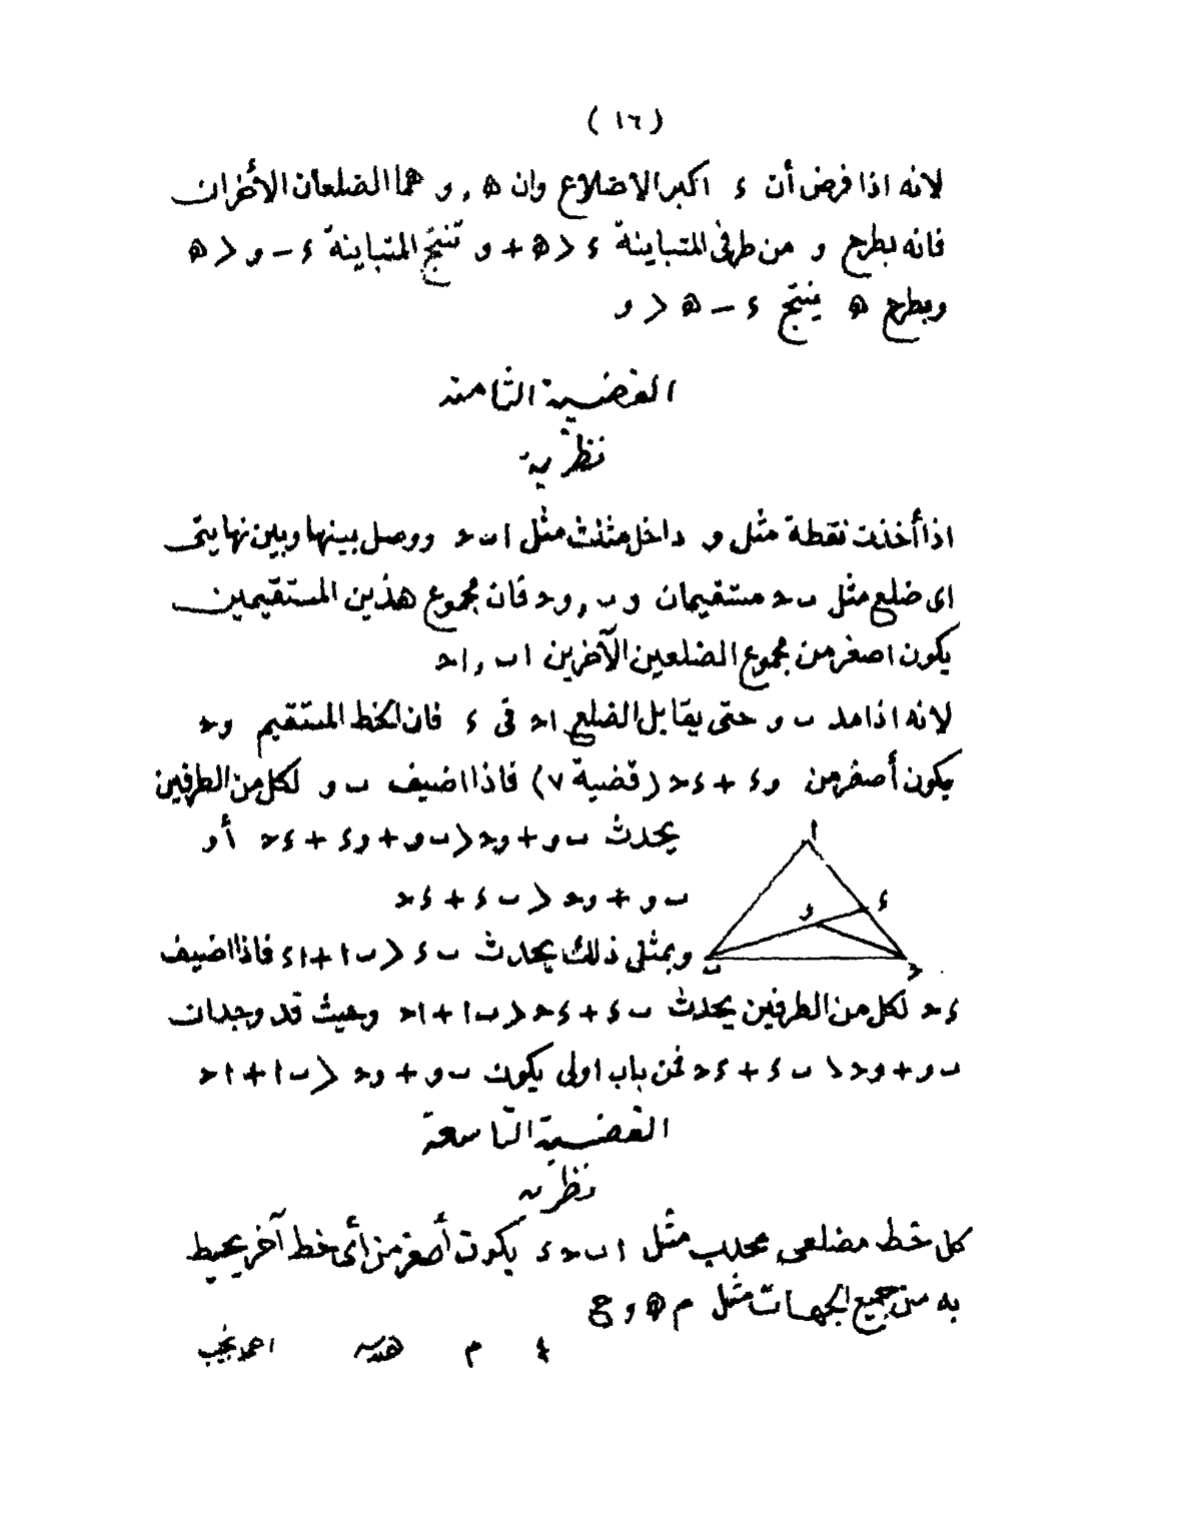 ( ١٦ )
لانه اذا فرض أن ء اكبر الاضلاع وان ه , و هما الضلعان الأخران
فانه بطرح و من طرفى المتباينة ء < ه + و تنتج المتباينة ء – و < ه
وبطرح ه ينتج ء – ه < و
القضية الثامنه
نظرية
اذا أخذت نقطة مثل و داخل مثلث مثل ا ب ح ووصل بينها وبين نهايتى
اى ضلع مثل ب ح مستقيمان و ب , و ح فان مجموع هذين المستقيمين
يكون اصغر من مجموع الضلعين الآخرين ا ب , ا ح
لانه اذا مد ب و حتى يقابل الضلع ا ح فى ء فان الخط المستقيم و ح
يكون أصغر من و ء + ء ح (قضية ٧) فاذا اضيف ب و لكل من الطرفين
يحدث ب و + و ح < ب و + و ء + ء ح أو
ب و + و ح < ب ء + ء ح
وبمثل ذلك يحدث ب ء < ب ا + ا ء فاذا اضيف
ء ح لكل من الطرفين يحدث ب ء + ء ح < ب ا + ا ح وحيث قد وجد ان
ب و + و ح < ب ء + ء ح فمن باب اولى يكون ب و + و ح < ب ا + ا ح
ا
ء
و
ب
ح
القضية التاسعة
نظريه
كل خط مضلعى محدب مثل ا ب ح ء يكون أصغر من أى خط آخر يحيط
به من جميع الجهات مثل م ه و ح
٤ م هندسه احمد نجيب